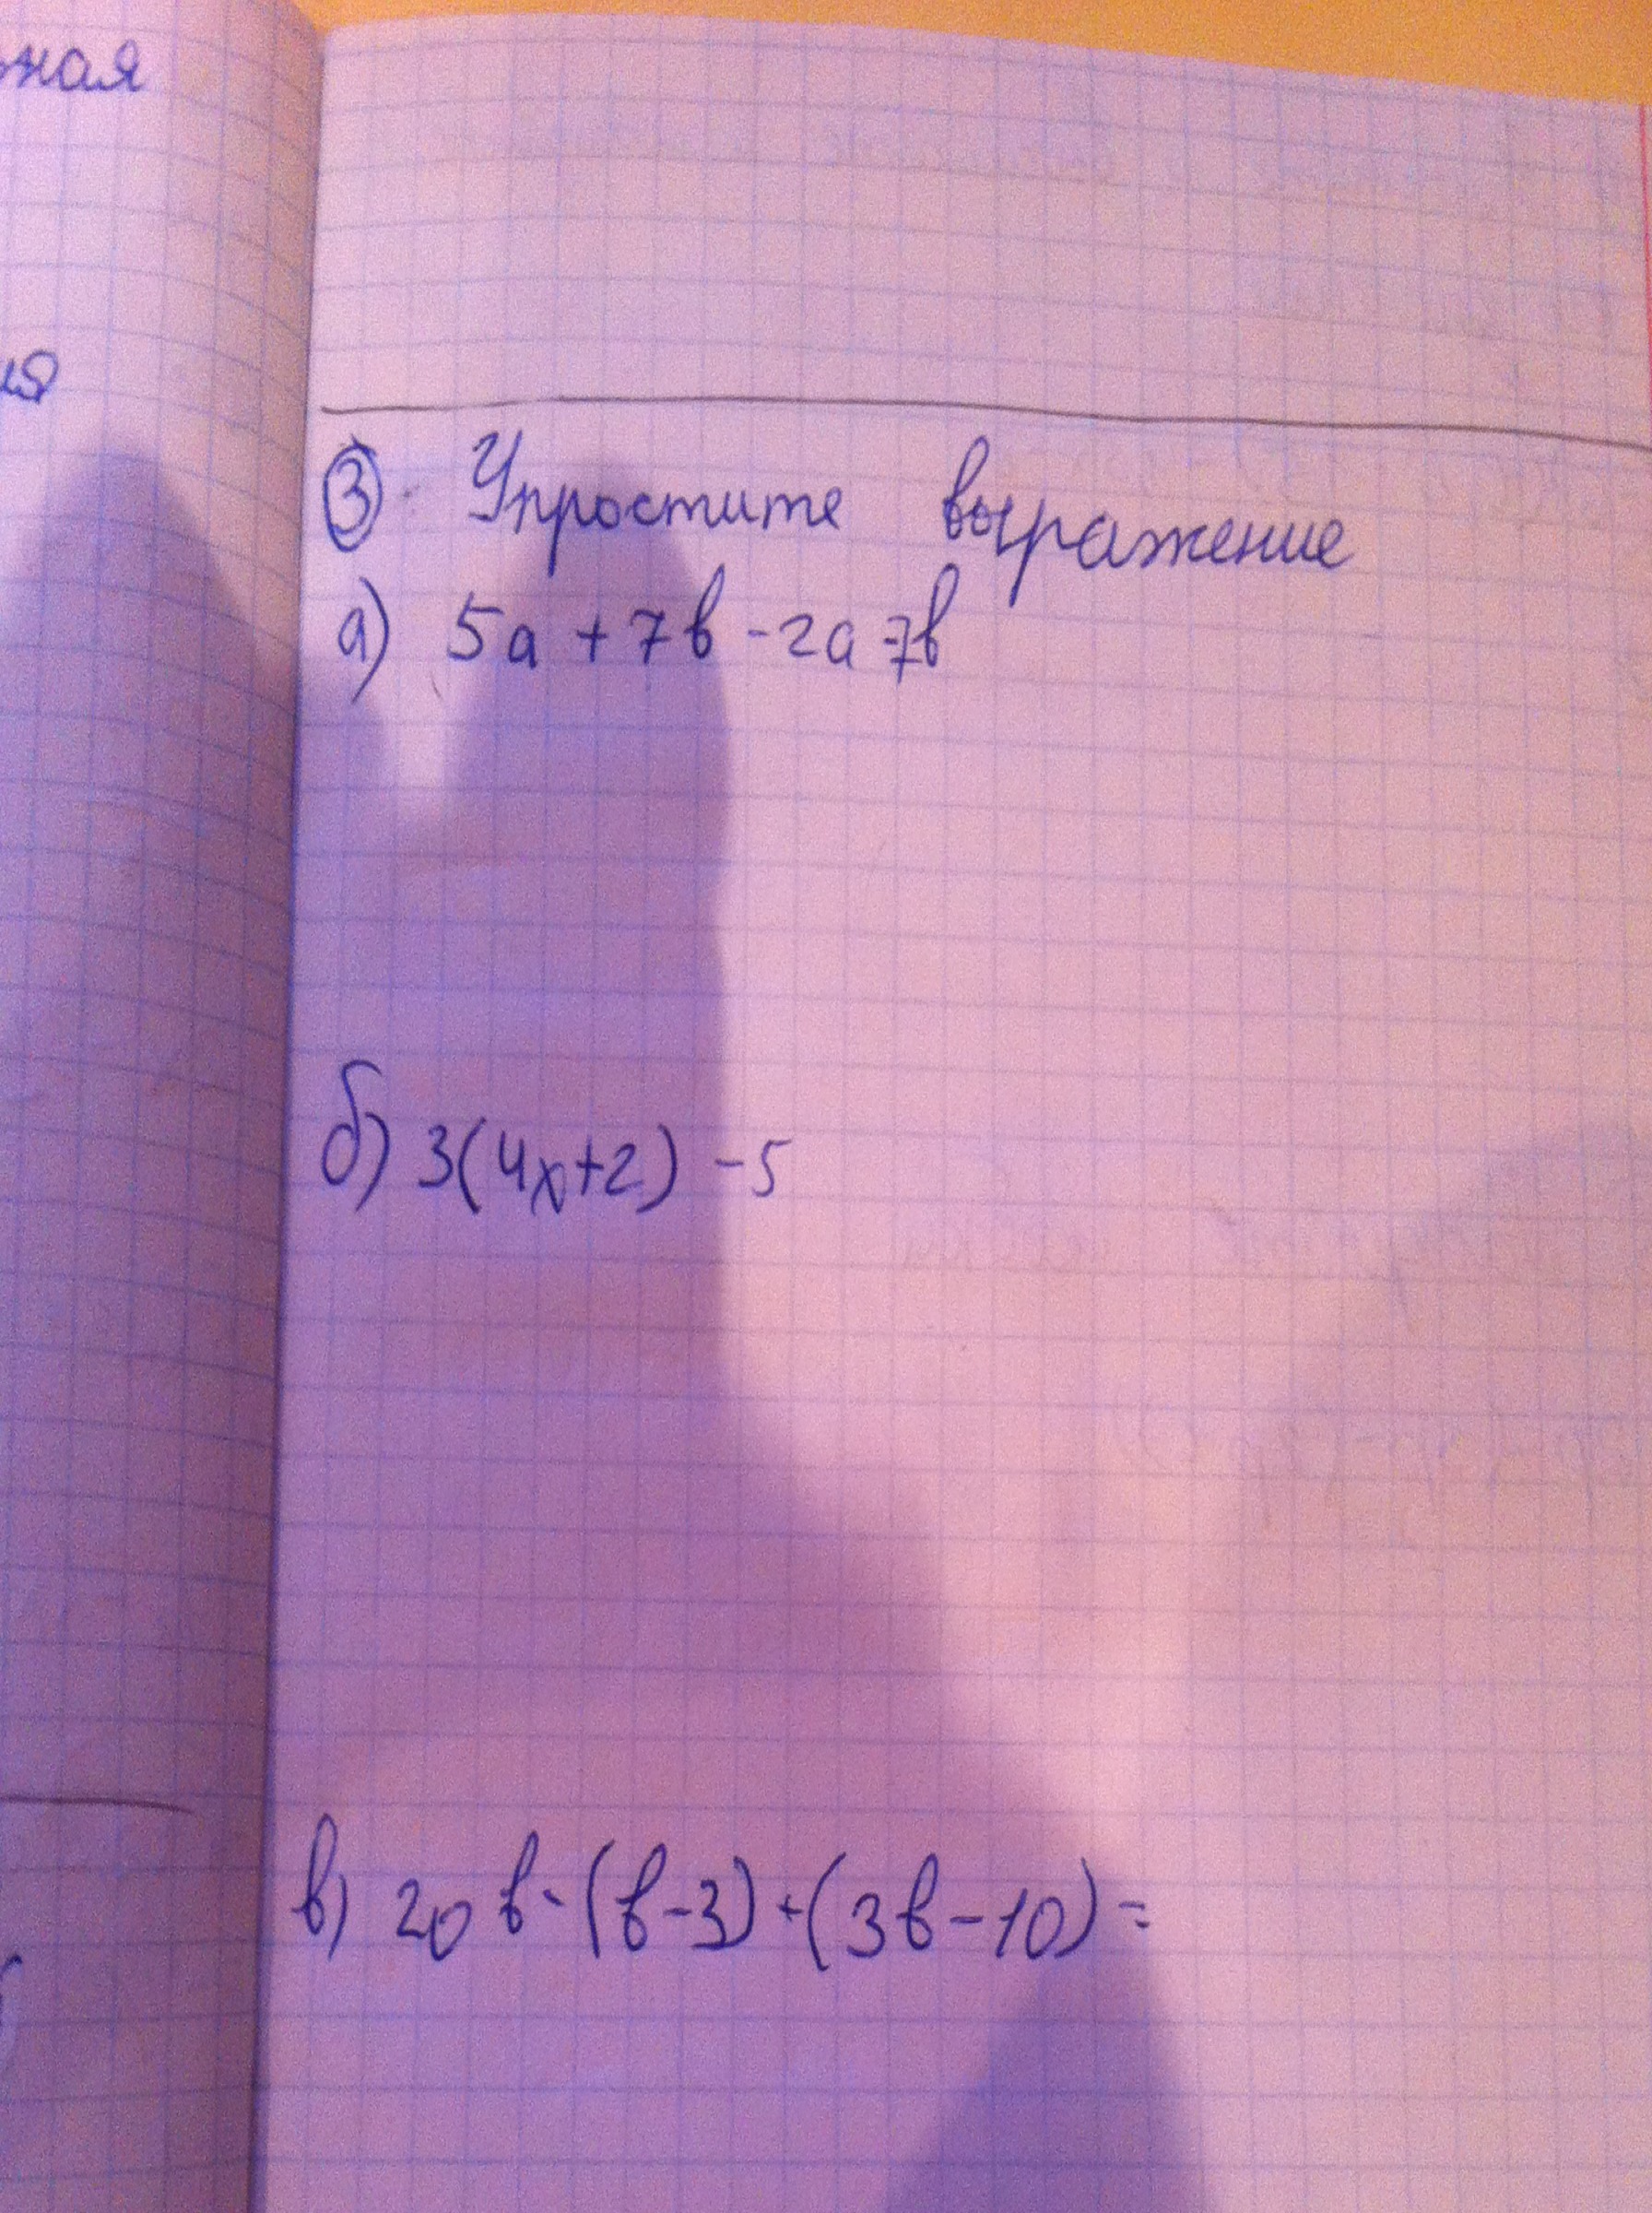 ная
ия
③ Упростите выражение
а) 5а + 7в - 2а - 7в
б) 3(4х+2) - 5
в) 20в - (в-3) + (3в-10) =